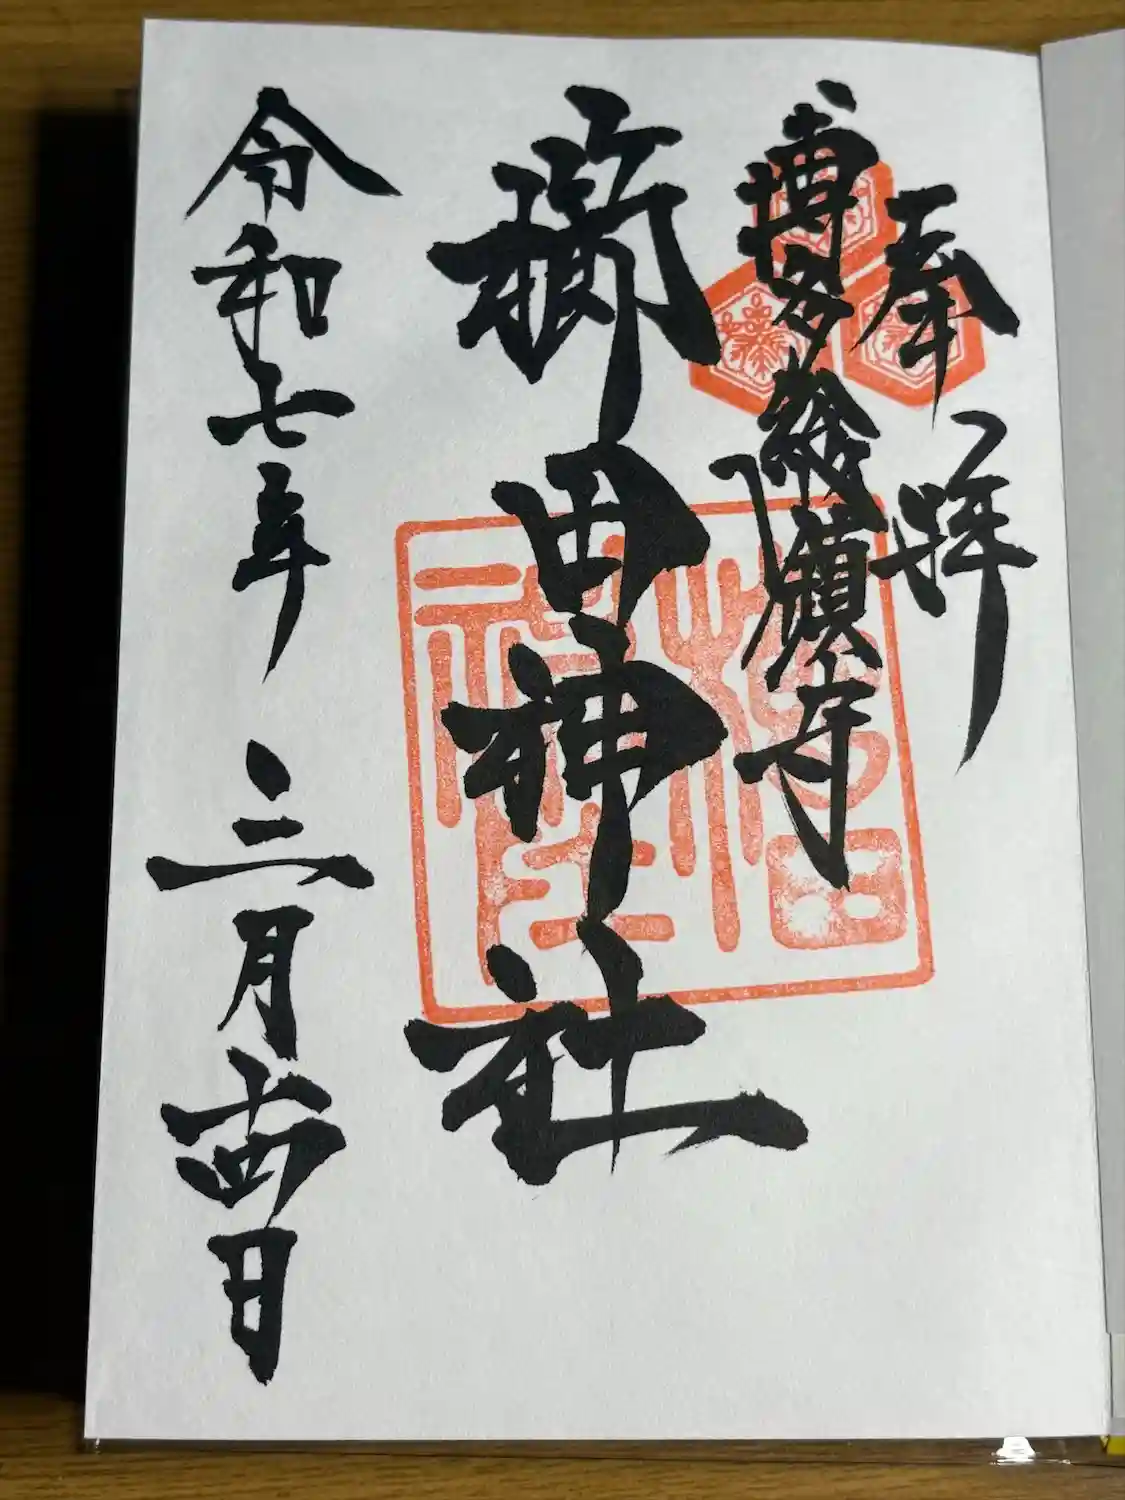 奉拝
博多総鎮守
櫛田神社
令和七年 三月十四日
櫛田
神社